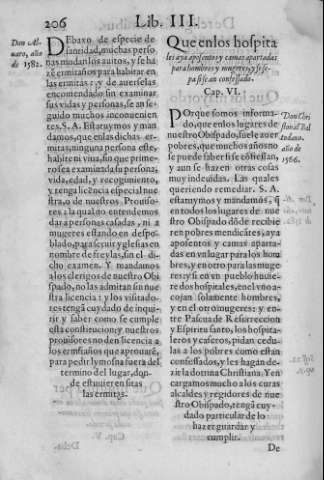 206
Lib. III.
Don Al-
uaro, año
de 1582.
DEbaxo de especie de
santidad, muchas perso
nas mudan los auitos, y se ha
zẽ ermitaños para habitar en
las ermitas: y de auerselas
encomendado sin examinar
sus vidas y personas, se an se
guido muchos inconuenien
tes. S. A. Estatuymos y man
damos, que en las dichas er
mitas, ninguna persona este,
habite ni viua, sin que prime-
ro sea examinada su persona,
vida, edad, y recogimiento,
y tenga licẽcia especial nue-
stra, o de nuestros Prouiso-
res: la qual no entendemos
dara personas casadas, ni a
mugeres estando en despo-
blado, para seruir yglesias en
nombre de freylas, sin el di-
cho examen. Y mandamos
a los clerigos de nuestro Obi
spado, no las admitan sin nue
stra licencia: y los visitado-
res tengã cuydado de inqui-
sir y saber como se cumple
esta constitucion, y nuestros
prouisores no den licencia a
los ermitaños que aprouarẽ,
para pedir lymosna fuera del
termino del lugar, don-
de estuuieren sitas
las ermitas.
Que en los hospita
les aya aposentos y camas apartadas
para hombres y mugeres, y se se-
pa si se an confessado.
Cap. VI.
POrque somos informa-
do, que en los lugares de
nuestro Obispado, suele auer
pobres, que muchos años no
se puede saber si se cõfiessan,
y aun se hazen otras cosas
muy indeuidas. Las quales
queriendo remediar. S. A.
estatuymos y mandamos, q̃
en todos los lugares de nue
stro Obispado dõde se recibẽ
ren pobres mendicãtes, aya
aposentos y camas aparta-
das en vn lugar para los hom
bres, y en otro para las muge
res: y si en vn pueblo huuie-
re dos hospitales, en el vno a-
cojan solamente hombres,
y en el otro mugeres: y en-
tre Pascua de Resurreccion
y Espiritu santo, los hospita-
leros y caseros, pidan cedu-
las a los pobres como estan
confessados, y les hagan de-
zir la dotrina Christiana. Y en
cargamos mucho a los curas
alcaldes y regidores de nue-
stro Obispado, tengã cuy-
dado particular de lo
hazer guardar y
cumplir.
Don Chri
stoual Bal
todano.
año de
1566.
De